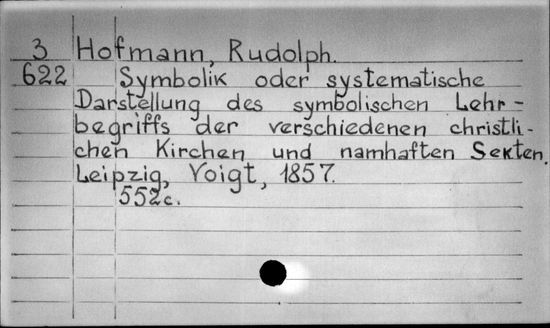 3 Hofmann, Rudolph.
622 Symbolik oder systematische
Darstellung des symbolischen Lehr-
begriffs der verschiedenen christli-
chen Kirchen und namhaften Sekten.
Leipzig, Voigt, 1857.
552c.